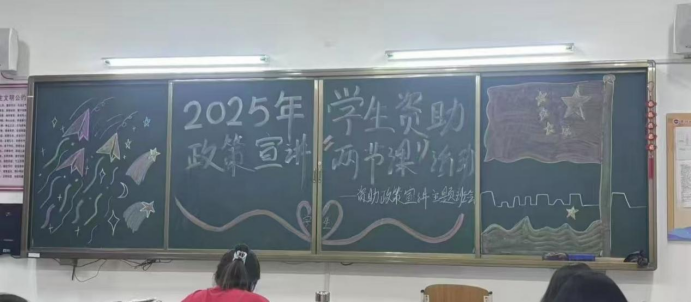 2025年 学生资助
政策宣讲“两节课”活动
——资助政策宣讲主题班会